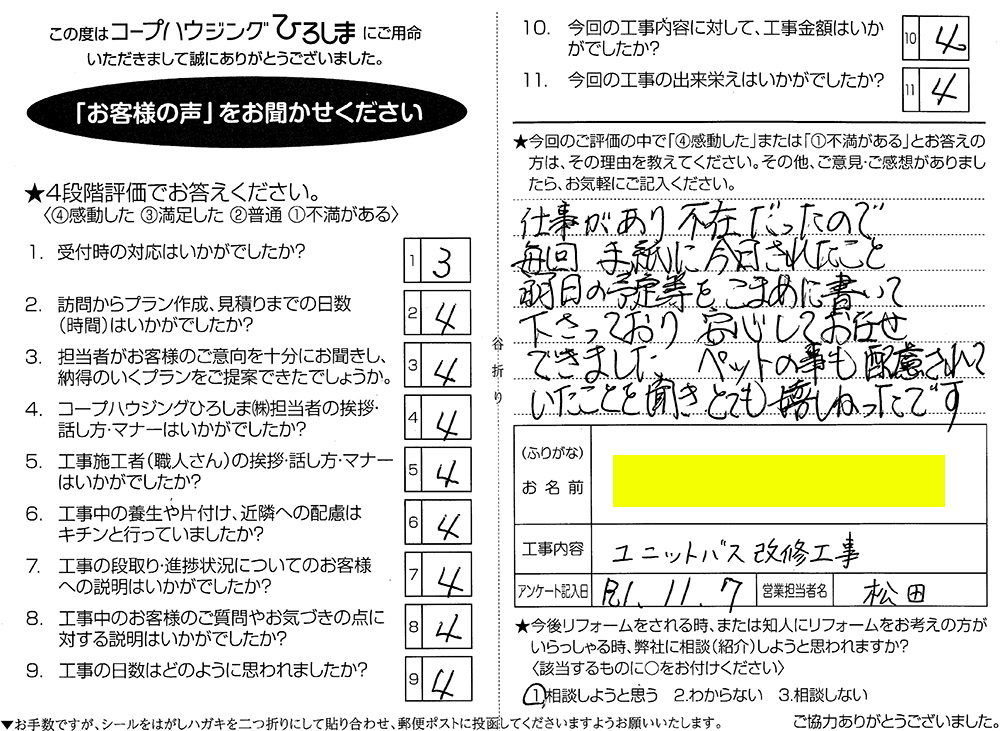 この度はコープハウジングひろしまにご用命
いただきまして誠にありがとうございました。
「お客様の声」をお聞かせください
★4段階評価でお答えください。
〈④感動した ③満足した ②普通 ①不満がある〉
1. 受付時の対応はいかがでしたか?
1 3
2. 訪問からプラン作成、見積りまでの日数
(時間)はいかがでしたか?
2 4
3. 担当者がお客様のご意向を十分にお聞きし、
納得のいくプランをご提案できたでしょうか。
3 4
4. コープハウジングひろしま㈱担当者の挨拶・
話し方・マナーはいかがでしたか?
4 4
5. 工事施工者(職人さん)の挨拶・話し方・マナー
はいかがでしたか?
5 4
6. 工事中の養生や片付け、近隣への配慮は
キチンと行っていましたか?
6 4
7. 工事の段取り・進捗状況についてのお客様
への説明はいかがでしたか?
7 4
8. 工事中のお客様のご質問やお気づきの点に
対する説明はいかがでしたか?
8 4
9. 工事の日数はどのように思われましたか?
9 4
谷折り
10. 今回の工事内容に対して、工事金額はいか
がでしたか?
10 4
11. 今回の工事の出来栄えはいかがでしたか?
11 4
★今回のご評価の中で「④感動した」または「①不満がある」とお答えの
方は、その理由を教えてください。その他、ご意見・ご感想がありまし
たら、お気軽にご記入ください。
仕事があり 不在だったので
毎回 手紙に今日されたこと
翌日の予定等をこまめに書いて
下さっており 安心してお任せ
できました ペットの事も配慮されて
いたことを聞きとても嬉しかったです
(ふりがな)
お名前
工事内容 ユニットバス改修工事
アンケート記入日 R1.11.7 営業担当者名 松田
★今後リフォームをされる時、または知人にリフォームをお考えの方が
いらっしゃる時、弊社に相談(紹介)しようと思われますか?
〈該当するものに○をお付けください〉
1.相談しようと思う 2.わからない 3.相談しない
▼お手数ですが、シールをはがしハガキを二つ折りにして貼り合わせ、郵便ポストに投函してくださいますようお願いいたします。
ご協力ありがとうございました。